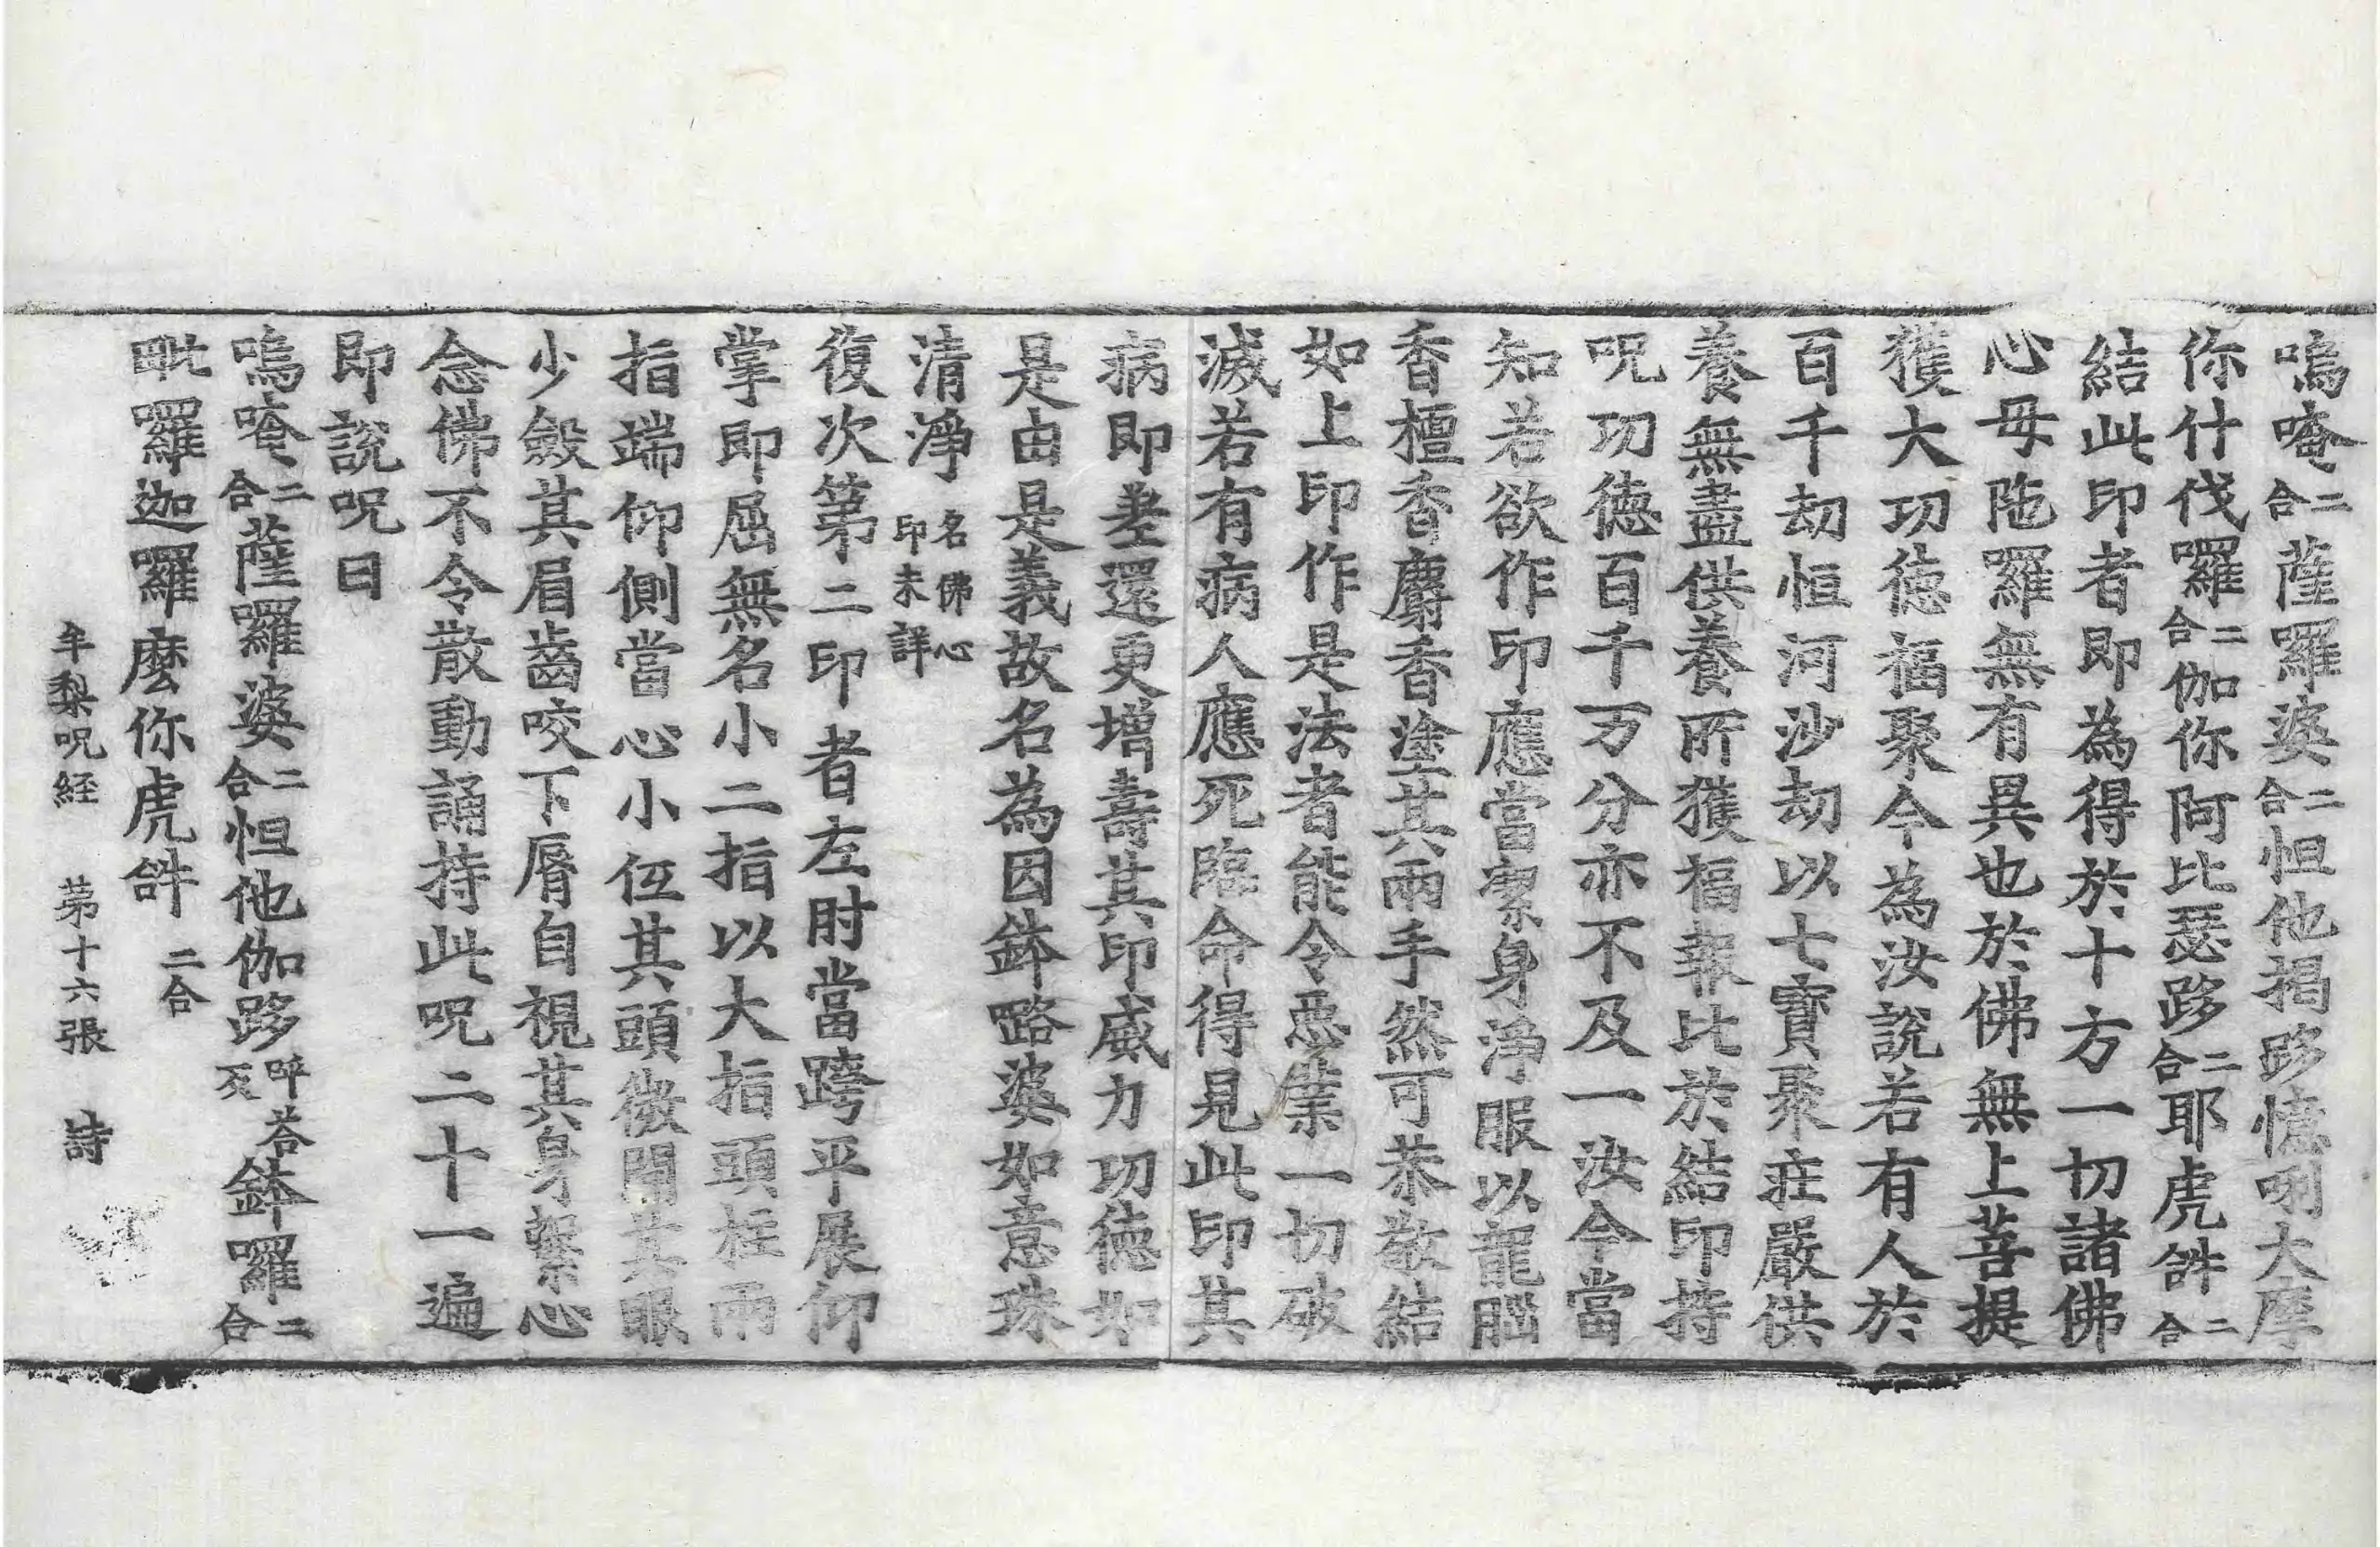 嗚唵二合薩囉婆二合怛他揭跢憶唎大摩
你什伐囉二合伽你阿比瑟跢二合耶虎𤙖二合
結此印者即為得於十方一切諸佛
心毋陁羅無有異也於佛無上菩提
獲大功德福聚今為汝說若有人於
百千劫恒河沙劫以七寶聚莊嚴供
養無盡供養所獲福報比於結印持
呪功德百千万分亦不及一汝今當
知若欲作印應當潔身淨服以龍腦
香檀香麝香塗其兩手然可恭敬結
如上印作是法者能令惡業一切破
滅若有病人應死臨命得見此印其
病即差還更增壽其印威力功德如
是由是義故名為因鉢㖨婆如意珠
清淨名佛心印未詳
復次第二印者左肘當跨平展仰
掌即屈無名小二指以大指頭柱兩
指端仰側當心小伍其頭微開其眼
少斂其眉齒咬下脣自視其身繫心
念佛不令散動誦持此呪二十一遍
即說呪曰
嗚唵二合薩囉婆二合怛他伽跢㖕荅鉢囉二合
毗囉迦囉麼你虎𤙖二合
牟梨呪経　第十六張　詩